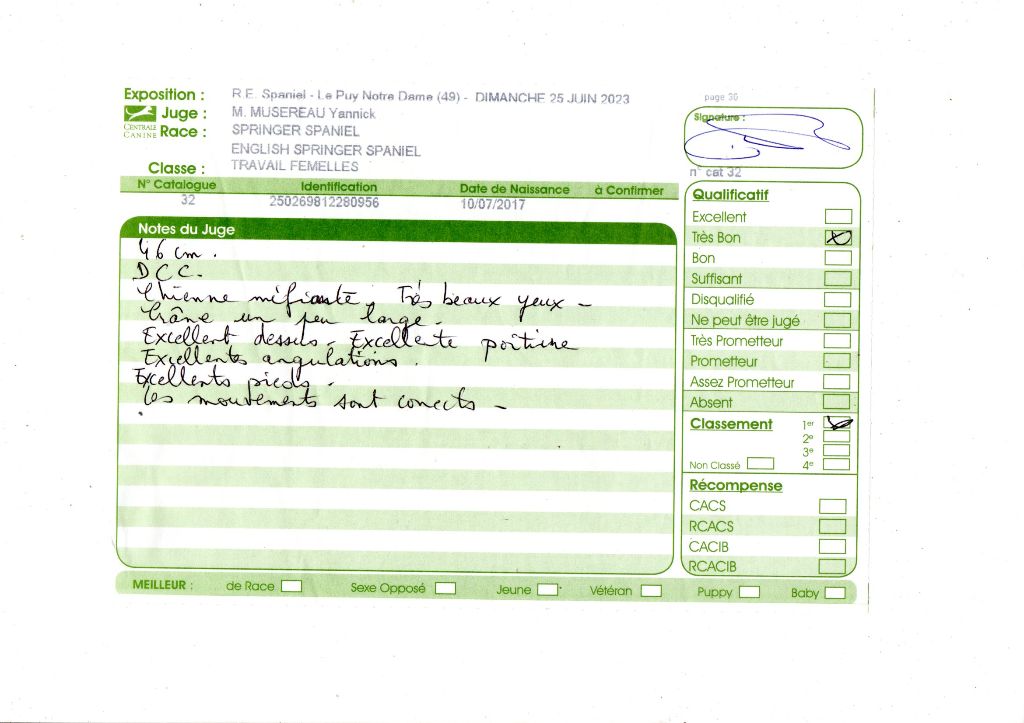 Exposition : R.E. Spaniel - Le Puy Notre Dame (49) - DIMANCHE 25 JUIN 2023
page 36
CENTRALE CANINE
Juge : M. MUSEREAU Yannick
Race : SPRINGER SPANIEL
ENGLISH SPRINGER SPANIEL
Classe : TRAVAIL FEMELLES
Signature :
n° cat 32
N° Catalogue Identification Date de Naissance à Confirmer
32 250269812280956 10/07/2017
Notes du Juge
46 cm.
D C C.
Chienne méfiante. Très beaux yeux -
Crâne un peu large.
Excellent dessus. Excellente poitrine
Excellents angulations.
Excellents pieds.
Les mouvements sont corrects -
Qualificatif
Excellent
Très Bon
Bon
Suffisant
Disqualifié
Ne peut être jugé
Très Prometteur
Prometteur
Assez Prometteur
Absent
Classement 1er
2e
3e
Non Classé 4e
Récompense
CACS
RCACS
CACIB
RCACIB
MEILLEUR : de Race Sexe Opposé Jeune Vétéran Puppy Baby